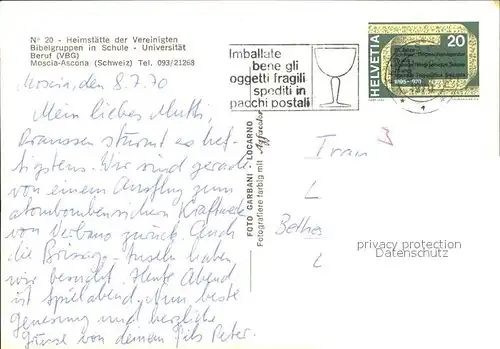 Nº 20 - Heimstätte der Vereinigten
Bibelgruppen in Schule - Universität
Beruf (VBG)
Moscia-Ascona (Schweiz) Tel. 093/21268
Imballate
bene gli
oggetti fragili
spediti in
pacchi postali
HELVETIA
20
Moscia, den 8.7.70
Mein lieber Mutti,
Draussen stürmt es hef-
tigstens. Wir sind gerade
von einem Ausflug zum
atombombensichern Kraftwerk
von Verbano zurück. Auch
die Brissago-Inseln haben
wir besucht. Heute Abend
ist Spielabend. Nun beste
genesung und herzliche
Grüsse von deinem Peter.
FOTO GARBANI - LOCARNO
Fotografiere farbig mit Agfacolor
Frau
L
Bethes
L
privacy protection
Datenschutz